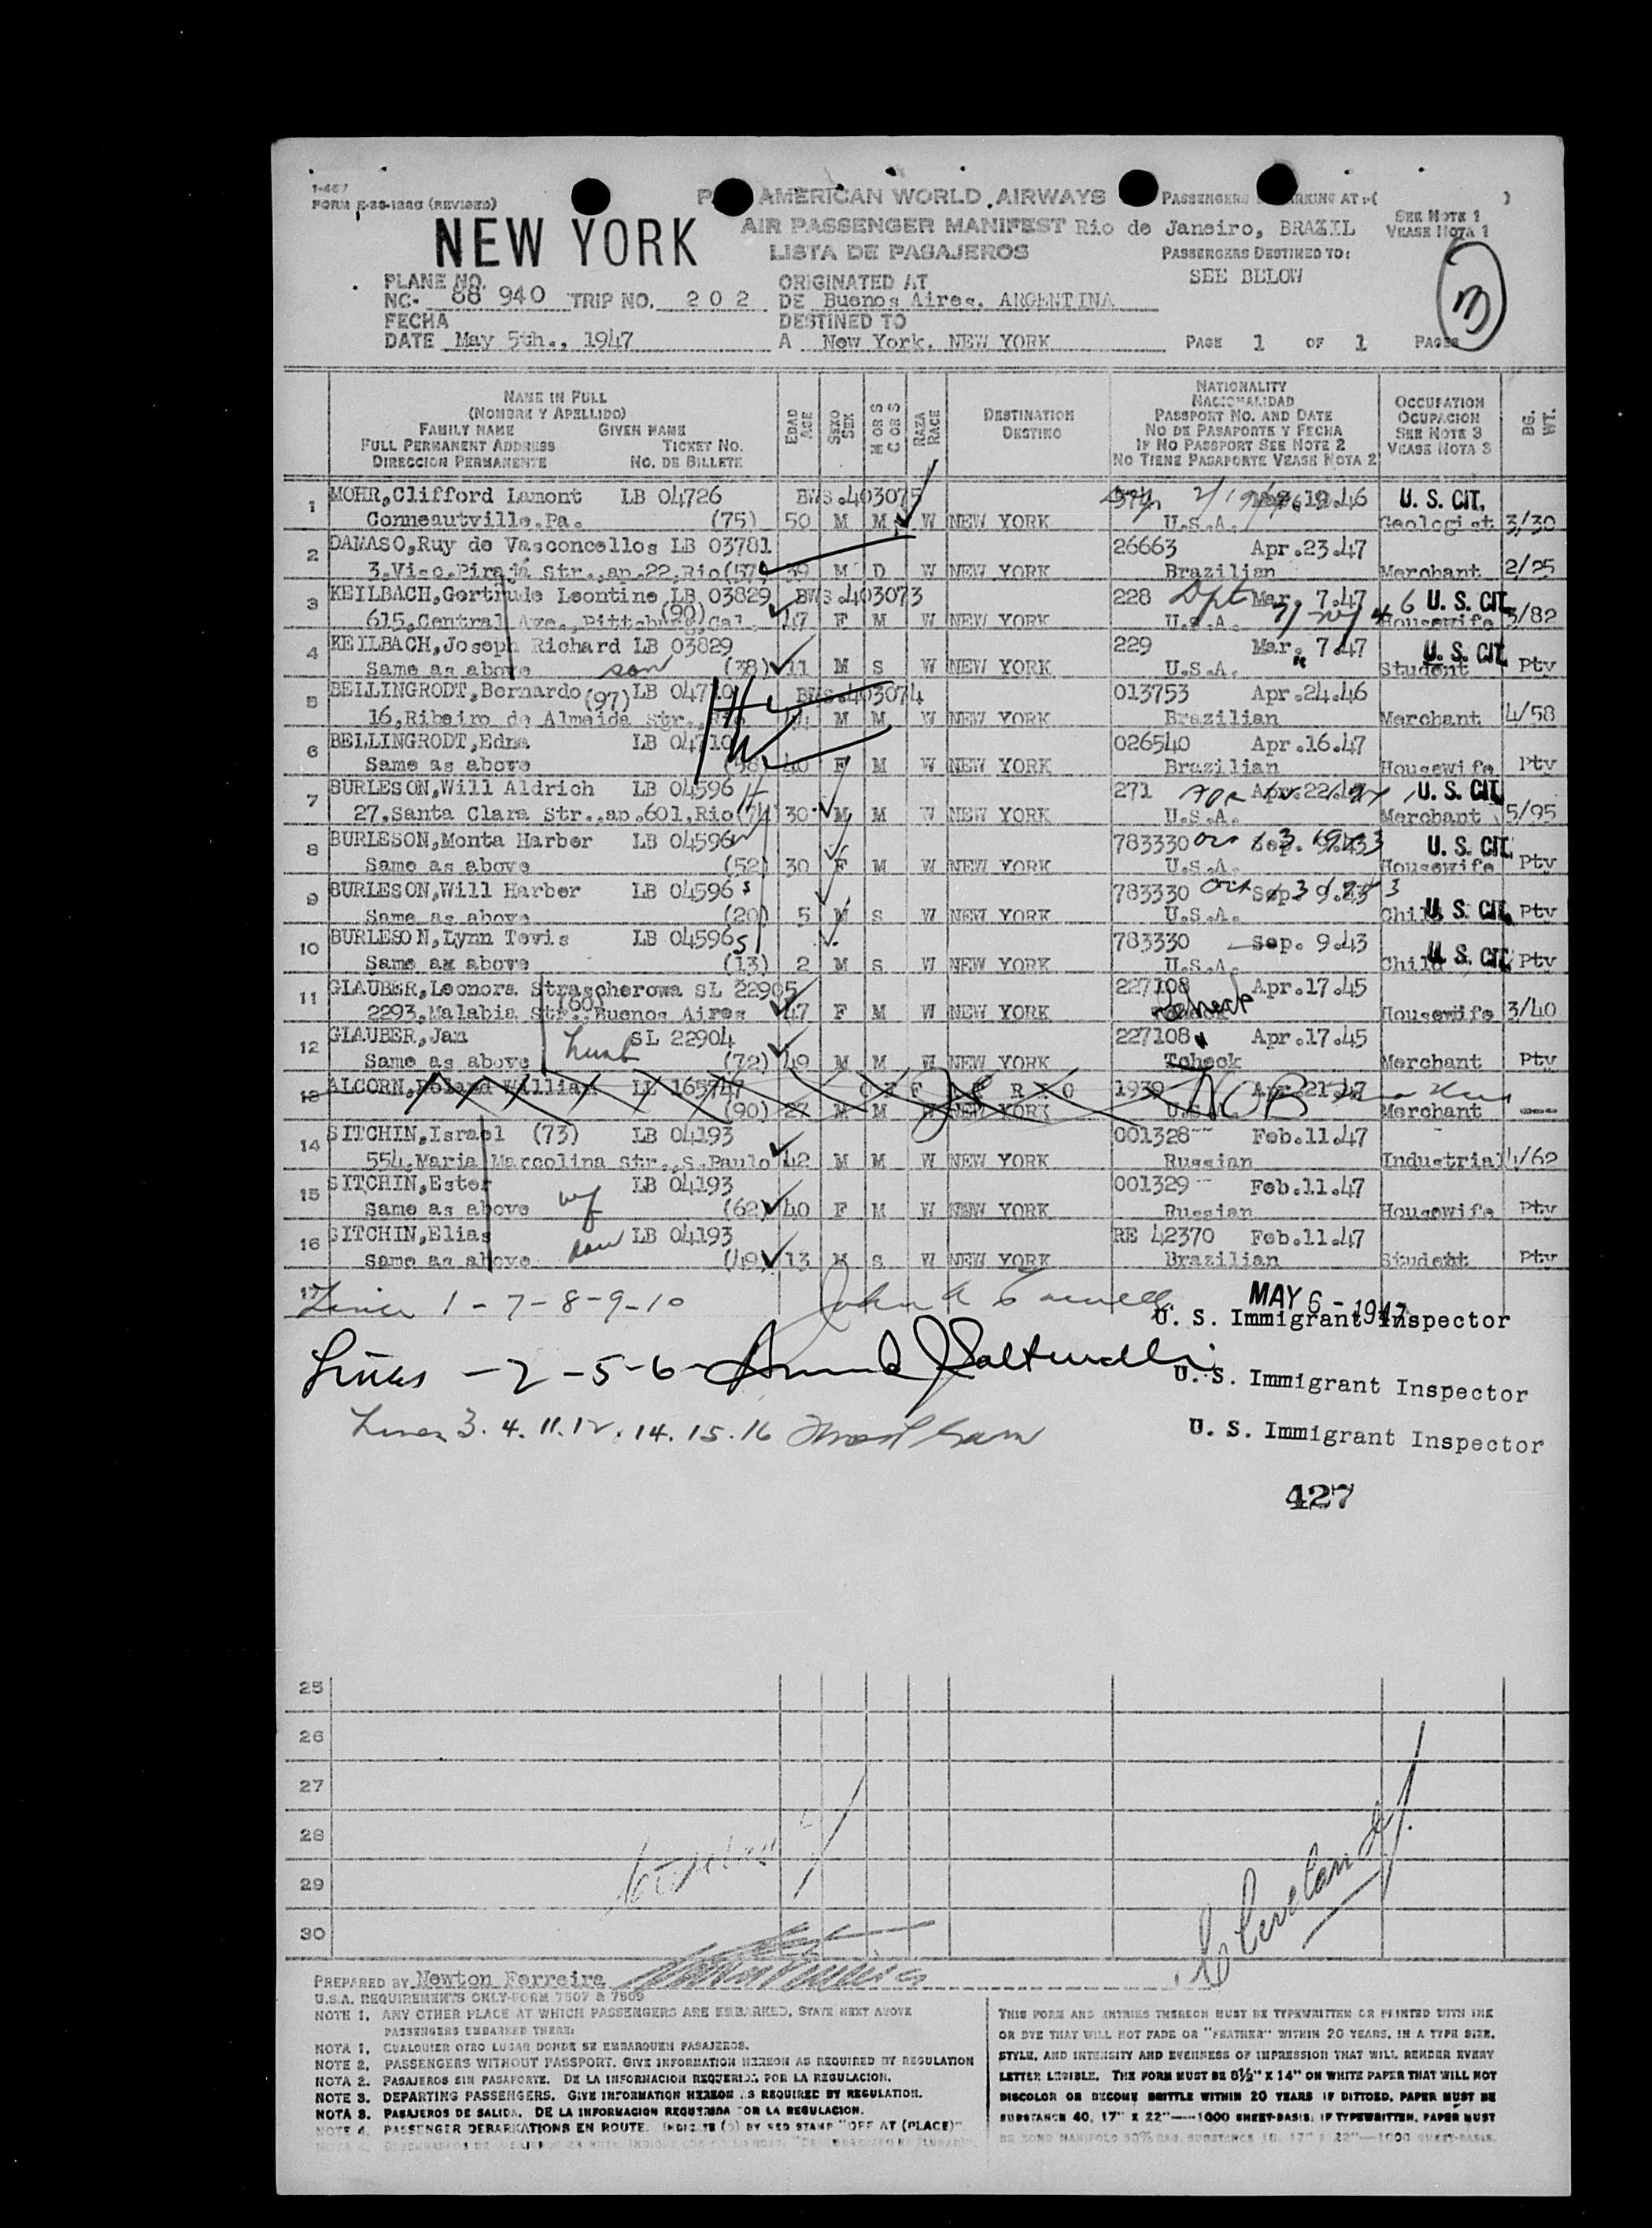 1-467
FORM E-33-122G (REVISED)
NEW YORK
AMERICAN WORLD AIRWAYS
AIR PASSENGER MANIFEST
LISTA DE PASAJEROS
PASSENGERS ARKING AT :- ( )
Rio de Janeiro, BRAZIL
SEE NOTE 1
VEASE NOTA 1
PASSENGERS DESTINED TO:
SEE BELOW
3
PLANE NO.
NC- 88 940 TRIP NO. 202
ORIGINATED AT
DE Buenos Aires, ARGENTINA
FECHA
DATE May 5th., 1947
DESTINED TO
A New York, NEW YORK
PAGE 1 OF 1 PAGES
NAME IN FULL
(NOMBRE Y APELLIDO)
FAMILY NAME GIVEN NAME
FULL PERMANENT ADDRESS TICKET NO.
DIRECCION PERMANENTE NO. DE BILLETE
EDAD AGE
SEXO SEX
M OR S
C OR S
RAZA RACE
DESTINATION
DESTINO
NATIONALITY
NACIONALIDAD
PASSPORT NO. AND DATE
NO DE PASAPORTE Y FECHA
IF NO PASSPORT SEE NOTE 2
NO TIENE PASAPORTE VEASE NOTA 2
OCCUPATION
OCUPACION
SEE NOTE 3
VEASE NOTA 3
BG. WT.
1 MOHR,Clifford Lamont LB 04726 BWS.403075 10.46 U. S. CIT.
Conneautville,Pa. (75) 50 M M W NEW YORK U.S.A. Geologist 3/30
2 DAMASO,Ruy de Vasconcellos LB 03781 26663 Apr.23.47
3,Visc.Pirajá Str.,ap.22,Rio(57) 39 M D W NEW YORK Brazilian Merchant 2/25
3 KEILBACH,Gertrude Leontine LB 03829 BWS.403073 228 Mar. 7.47 U. S. CIT.
615,Central Ave.,Pittsburg,Cal. (90) 47 F M W NEW YORK U.S.A. Housewife 3/82
4 KEILBACH,Joseph Richard LB 03829 229 Mar. 7.47 U. S. CIT.
Same as above son (38) 11 M S W NEW YORK U.S.A. Student Pty
5 BELLINGRODT,Bernardo (97) LB 04710 BWS.403074 013753 Apr.24.46
16,Ribeiro de Almeida Str.,Rio M M W NEW YORK Brazilian Merchant 4/58
6 BELLINGRODT,Edna LB 04710 026540 Apr.16.47
Same as above (58) 40 F M W NEW YORK Brazilian Housewife Pty
7 BURLESON,Will Aldrich LB 04596 H 271 Apr.22.47 U. S. CIT.
27,Santa Clara Str.,ap.601,Rio(74) 30 M M W NEW YORK U.S.A. Merchant 5/95
8 BURLESON,Monta Harber LB 04596 W 783330 Oct U. S. CIT.
Same as above (52) 30 F M W NEW YORK U.S.A. Housewife Pty
9 BURLESON,Will Harber LB 04596 s 783330 Oct
Same as above (20) 5 M S W NEW YORK U.S.A. Child U. S. CIT. Pty
10 BURLESON,Lynn Tevis LB 04596 s 783330 Sep. 9.43
Same as above (13) 2 M S W NEW YORK U.S.A. Child U. S. CIT. Pty
11 GLAUBER,Leonora Strascherowa SL 22905 227108 Apr.17.45
2293,Malabia Str.,Buenos Aires (60) 47 F M W NEW YORK Scheck Housewife 3/40
12 GLAUBER,Jan SL 22904 227108 Apr.17.45
Same as above husb (72) 49 M M W NEW YORK Tcheck Merchant Pty
13 ALCORN,Roland William LL 165747 OFF AT RIO 1939 Apr.21.47
(90) 27 M M W NEW YORK U.S.A. NOB Merchant ---
14 SITCHIN,Israel (73) LB 04193 001328 Feb.11.47
554,Maria Marcolina Str.,S.Paulo 42 M M W NEW YORK Russian Industrial 4/62
15 SITCHIN,Ester LB 04193 001329 Feb.11.47
Same as above wf (62) 40 F M W NEW YORK Russian Housewife Pty
16 SITCHIN,Elias LB 04193 RE 42370 Feb.11.47
Same as above son (49) 13 M S W NEW YORK Brazilian Student Pty
17 Lines 1 - 7 - 8 - 9 - 10 John
MAY 6 - 1947
U. S. Immigrant Inspector
Lines - 2 - 5 - 6 -
U. S. Immigrant Inspector
Lines 3. 4. 11. 12. 14. 15. 16
U. S. Immigrant Inspector
427
25
26
27
28
29
30
PREPARED BY Newton Ferreira
U.S.A. REQUIREMENTS ONLY-FORM 7507 & 7509
NOTE 1. ANY OTHER PLACE AT WHICH PASSENGERS ARE EMBARKED, STATE NEXT ABOVE
PASSENGERS EMBARKED THERE.
NOTA 1. CUALQUIER OTRO LUGAR DONDE SE EMBARQUEN PASAJEROS.
NOTE 2. PASSENGERS WITHOUT PASSPORT. GIVE INFORMATION HEREON AS REQUIRED BY REGULATION
NOTA 2. PASAJEROS SIN PASAPORTE. DE LA INFORMACION REQUERIDA POR LA REGULACION.
NOTE 3. DEPARTING PASSENGERS. GIVE INFORMATION HEREON AS REQUIRED BY REGULATION.
NOTA 3. PASAJEROS DE SALIDA. DE LA INFORMACION REQUERIDA POR LA REGULACION.
NOTE 4. PASSENGER DEBARKATIONS EN ROUTE. INDICATE (?) BY RED STAMP "OFF AT (PLACE)".
THIS FORM AND ENTRIES THEREON MUST BE TYPEWRITTEN OR PRINTED WITH INK
OR DYE THAT WILL NOT FADE OR "FEATHER" WITHIN 20 YEARS, IN A TYPE SIZE,
STYLE, AND INTENSITY AND EVENNESS OF IMPRESSION THAT WILL RENDER EVERY
LETTER LEGIBLE. THE FORM MUST BE 8½" X 14" ON WHITE PAPER THAT WILL NOT
DISCOLOR OR BECOME BRITTLE WITHIN 20 YEARS IF DITTOED, PAPER MUST BE
SUBSTANCE 40, 17" X 22"—1000 SHEET-BASIS; IF TYPEWRITTEN, PAPER MUST
BE BOND MANIFOLD 50% RAG, SUBSTANCE 18, 17" X 22"—1000 SHEET-BASIS.